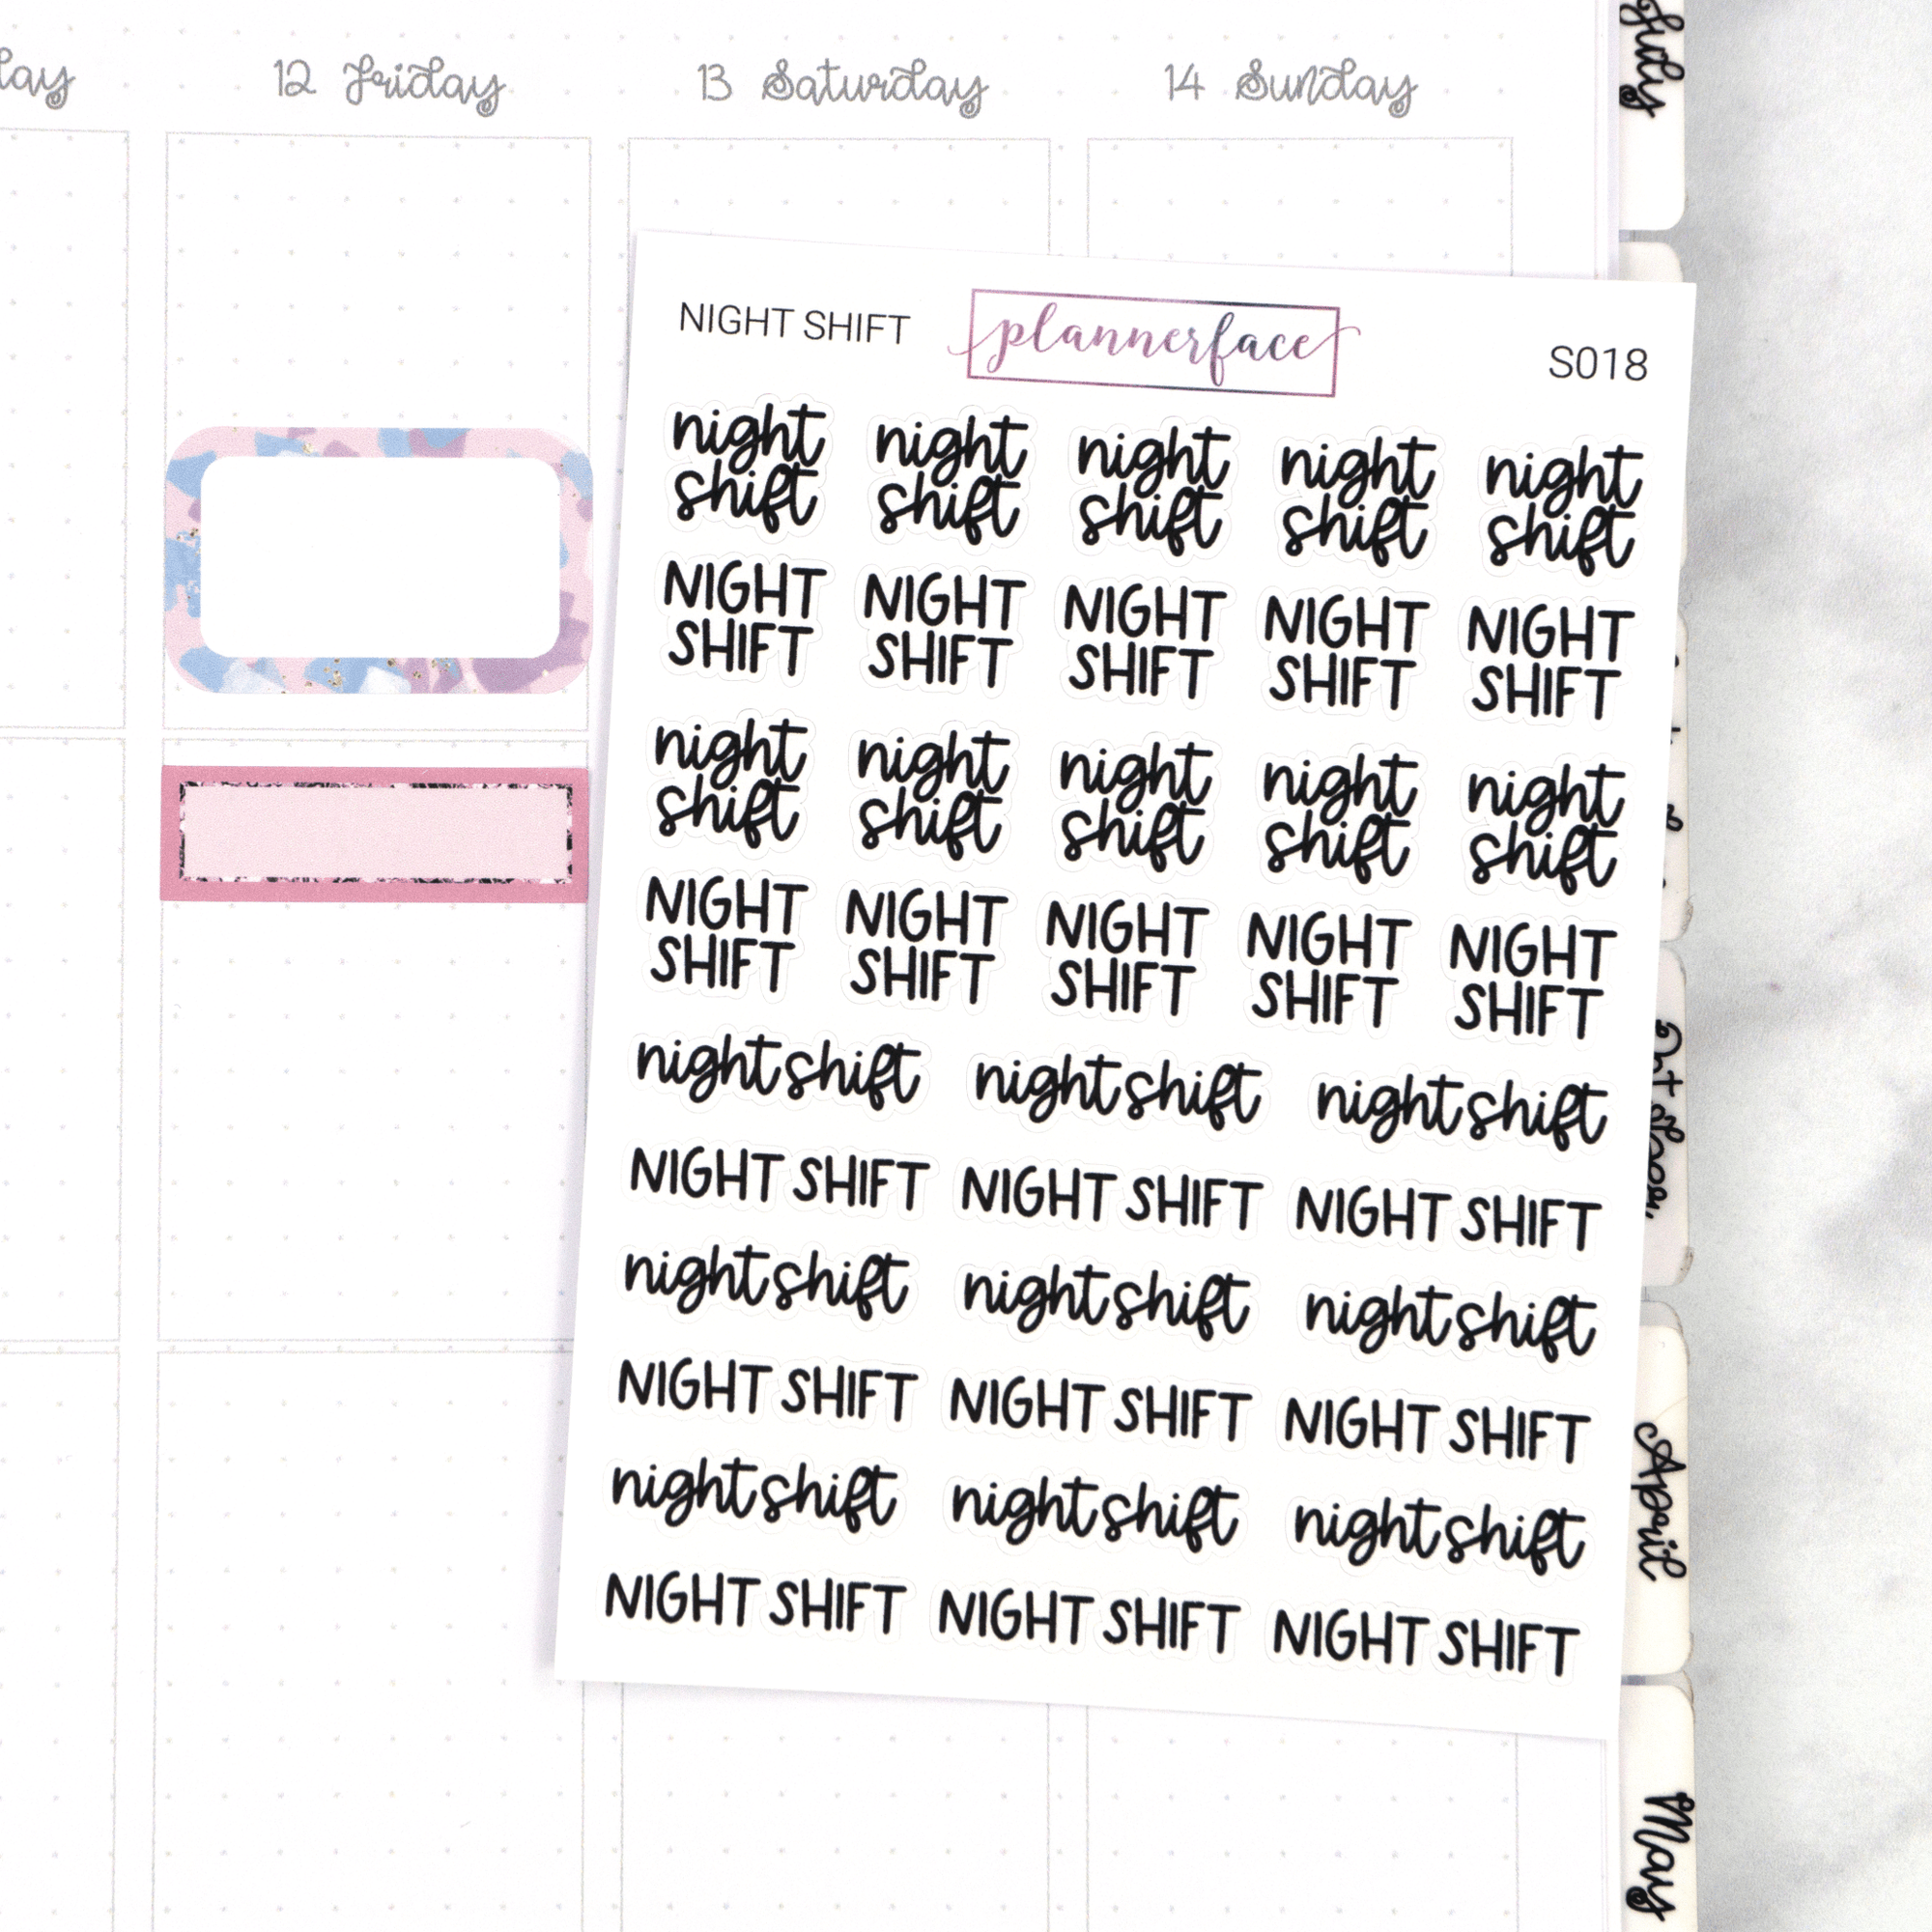 12 Friday 13 Saturday 14 Sunday
July
NIGHT SHIFT plannerface S018
night night night night night
shift shift shift shift shift
NIGHT NIGHT NIGHT NIGHT NIGHT
SHIFT SHIFT SHIFT SHIFT SHIFT
night night night night night
shift shift shift shift shift
NIGHT NIGHT NIGHT NIGHT NIGHT
SHIFT SHIFT SHIFT SHIFT SHIFT
night shift night shift night shift
NIGHT SHIFT NIGHT SHIFT NIGHT SHIFT
night shift night shift night shift
NIGHT SHIFT NIGHT SHIFT NIGHT SHIFT
night shift night shift night shift
NIGHT SHIFT NIGHT SHIFT NIGHT SHIFT
April
May